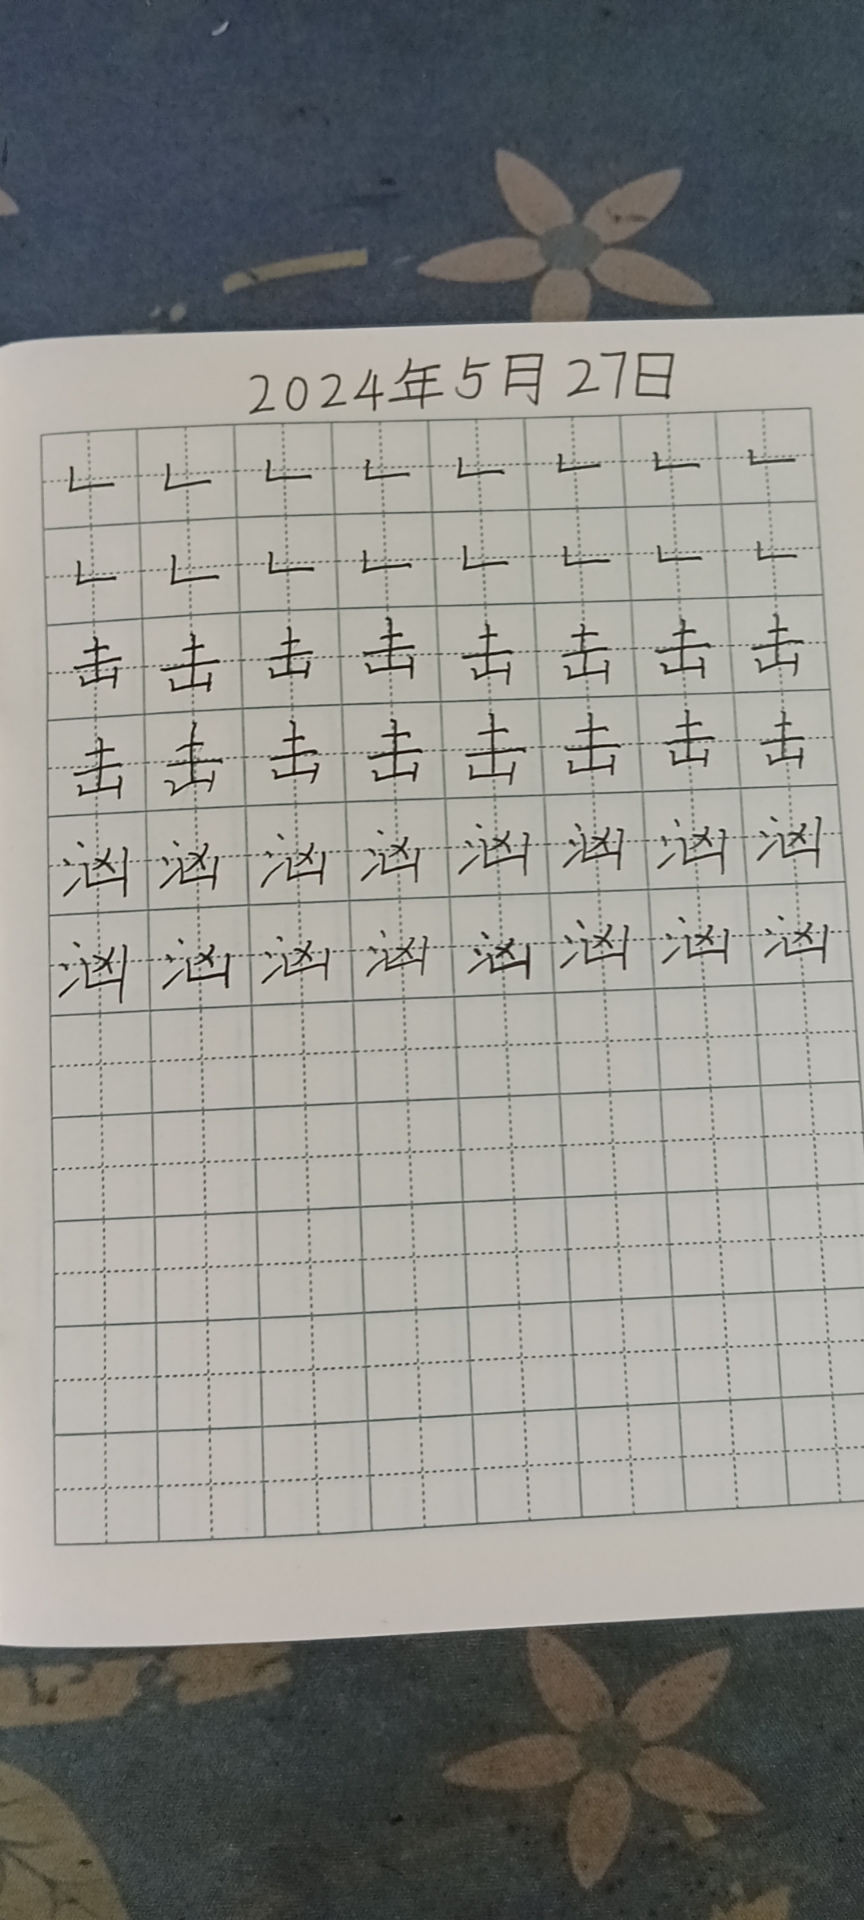 2024年5月27日
𠃊 𠃊 𠃊 𠃊 𠃊 𠃊 𠃊 𠃊
𠃊 𠃊 𠃊 𠃊 𠃊 𠃊 𠃊 𠃊
击 击 击 击 击 击 击 击
击 击 击 击 击 击 击 击
汹 汹 汹 汹 汹 汹 汹 汹
汹 汹 汹 汹 汹 汹 汹 汹